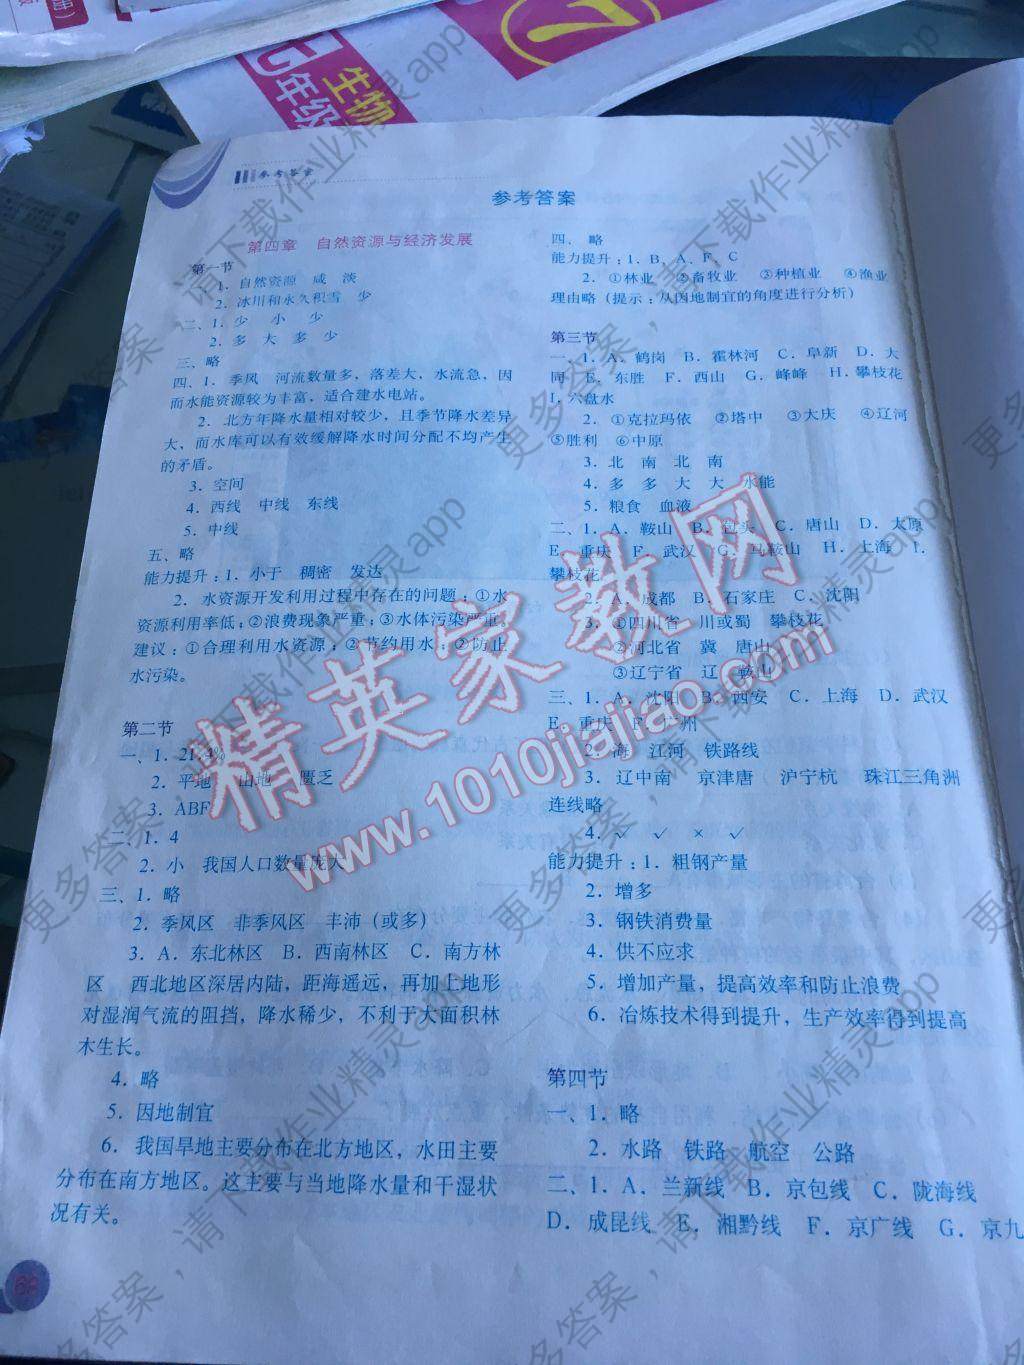 生物
7
年级
参考答案
参考答案
第四章 自然资源与经济发展
第一节
1. 自然资源 咸 淡
2. 冰川和永久积雪 少
二、1. 少 小 少
2. 多 大 多 少
三、略
四、1. 季风 河流数量多，落差大，水流急，因
而水能资源较为丰富，适合建水电站。
2. 北方年降水量相对较少，且季节降水差异
大，而水库可以有效缓解降水时间分配不均产生
的矛盾。
3. 空间
4. 西线 中线 东线
5. 中线
五、略
能力提升：1. 小于 稠密 发达
2. 水资源开发利用过程中存在的问题：①水
资源利用率低；②浪费现象严重；③水体污染严重。
建议：①合理利用水资源；②节约用水；②防止
水污染。
第二节
一、1. 21.4%
2. 平地 山地 匮乏
3. ABF
二、1. 4
2. 小 我国人口数量庞大
三、1. 略
2. 季风区 非季风区 丰沛（或多）
3. A. 东北林区 B. 西南林区 C. 南方林
区 西北地区深居内陆，距海遥远，再加上地形
对湿润气流的阻挡，降水稀少，不利于大面积林
木生长。
4. 略
5. 因地制宜
6. 我国旱地主要分布在北方地区，水田主要
分布在南方地区。这主要与当地降水量和干湿状
况有关。
四、略
能力提升：1. B、A、F、C
2. ①林业 ②畜牧业 ③种植业 ④渔业
理由略（提示：从因地制宜的角度进行分析）
第三节
一、1. A. 鹤岗 B. 霍林河 C. 阜新 D. 大
同 E. 东胜 F. 西山 G. 峰峰 H. 攀枝花
I. 六盘水
2. ①克拉玛依 ②塔中 ③大庆 ④辽河
⑤胜利 ⑥中原
3. 北 南 北 南
4. 多 多 大 大 水能
5. 粮食 血液
二、1. A. 鞍山 B. 包头 C. 唐山 D. 太原
E. 重庆 F. 武汉 G. 马鞍山 H. 上海 I.
攀枝花
2. A. 成都 B. 石家庄 C. 沈阳
3. ①四川省 川或蜀 攀枝花
②河北省 冀 唐山
③辽宁省 辽 鞍山
三、1. A. 沈阳 B. 西安 C. 上海 D. 武汉
E. 重庆 F. 广州
2. 海 江河 铁路线
3. 辽中南 京津唐 沪宁杭 珠江三角洲
连线略
4. √ √ × √
能力提升：1. 粗钢产量
2. 增多
3. 钢铁消费量
4. 供不应求
5. 增加产量，提高效率和防止浪费
6. 冶炼技术得到提升，生产效率得到提高
第四节
一、1. 略
2. 水路 铁路 航空 公路
二、1. A. 兰新线 B. 京包线 C. 陇海线
D. 成昆线 E. 湘黔线 F. 京广线 G. 京九
精英家教网
www.1010jiajiao.com
更多答案，请下载作业精灵app